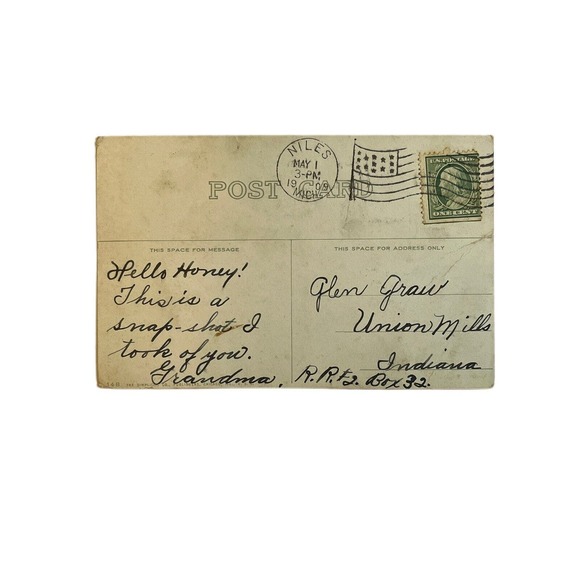 NILES
MAY 1
3-PM
1909
MICH.
U.S. POSTAGE
ONE CENT
POST CARD
THIS SPACE FOR MESSAGE
THIS SPACE FOR ADDRESS ONLY
Hello Honey!
This is a
snap-shot I
took of you.
Grandma.
Glen Graw
Union Mills
Indiana
R.R.#2. Box 32.